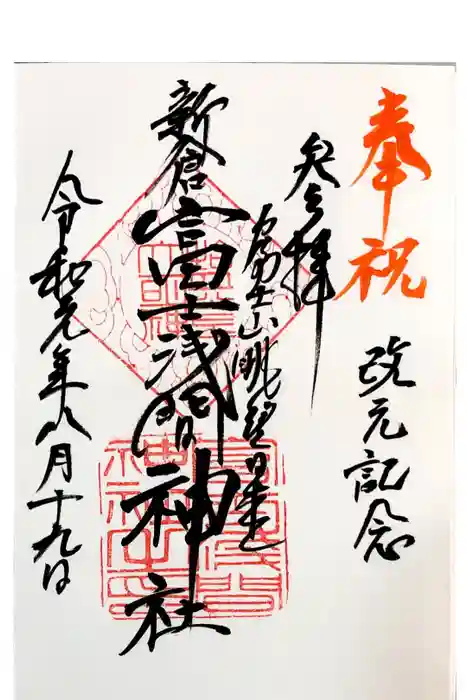 奉祝
改元記念
参拝
富士山眺望
新倉富士浅間神社
令和元年八月十九日